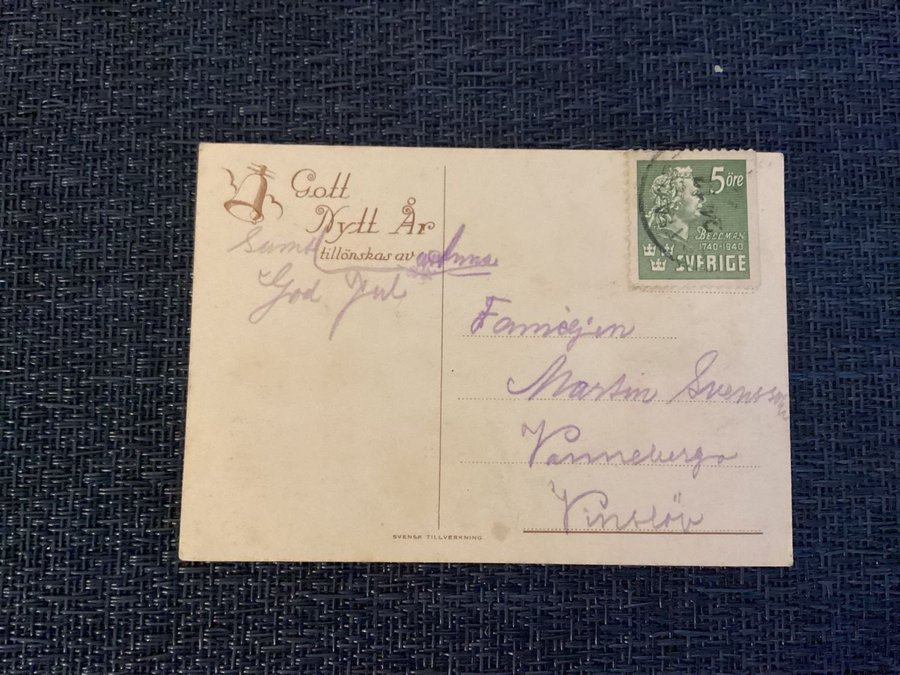 Gott
Nytt År
tillönskas av Anna
Samt
God Jul
5 öre
BELLMAN
1740-1940
SVERIGE
Familjen
Martin Svensson
Vanneberga
Vinslöv
SVENSK TILLVERKNING